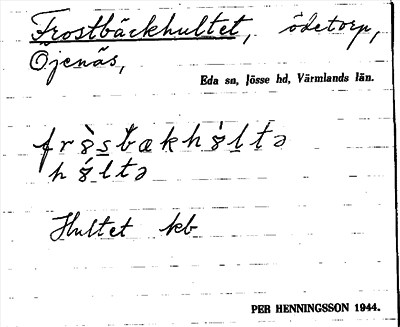 Frostbäckhultet, ödetorp,
Öjenäs,
Eda sn, Jösse hd, Värmlands län.
Hultet kb
PER HENNINGSSON 1944.